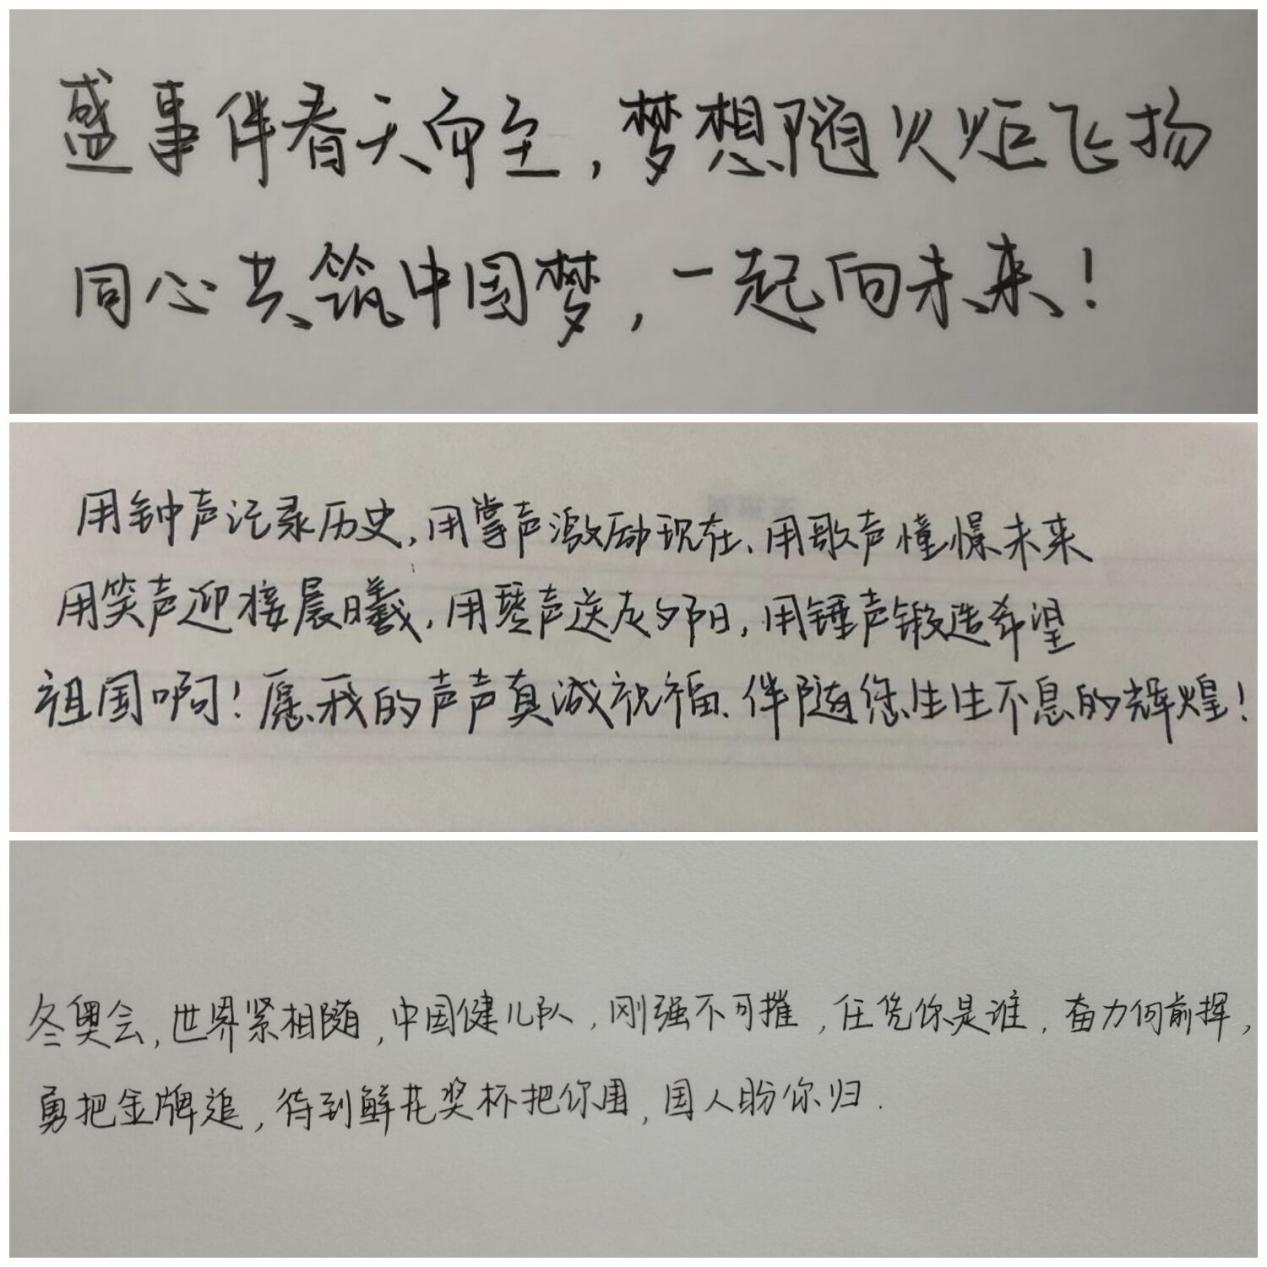 盛事伴春天而至,梦想随火炬飞扬
同心共筑中国梦,一起向未来!
用钟声记录历史,用掌声激励现在、用歌声憧憬未来
用笑声迎接晨曦,用琴声送友夕阳,用锤声锻造希望
祖国啊!愿我的声声真诚祝福、伴随您生生不息的辉煌!
冬奥会,世界紧相随,中国健儿队,刚强不可摧,任凭你是谁,奋力向前挥,
勇把金牌追,待到鲜花奖杯把你围,国人盼你归.